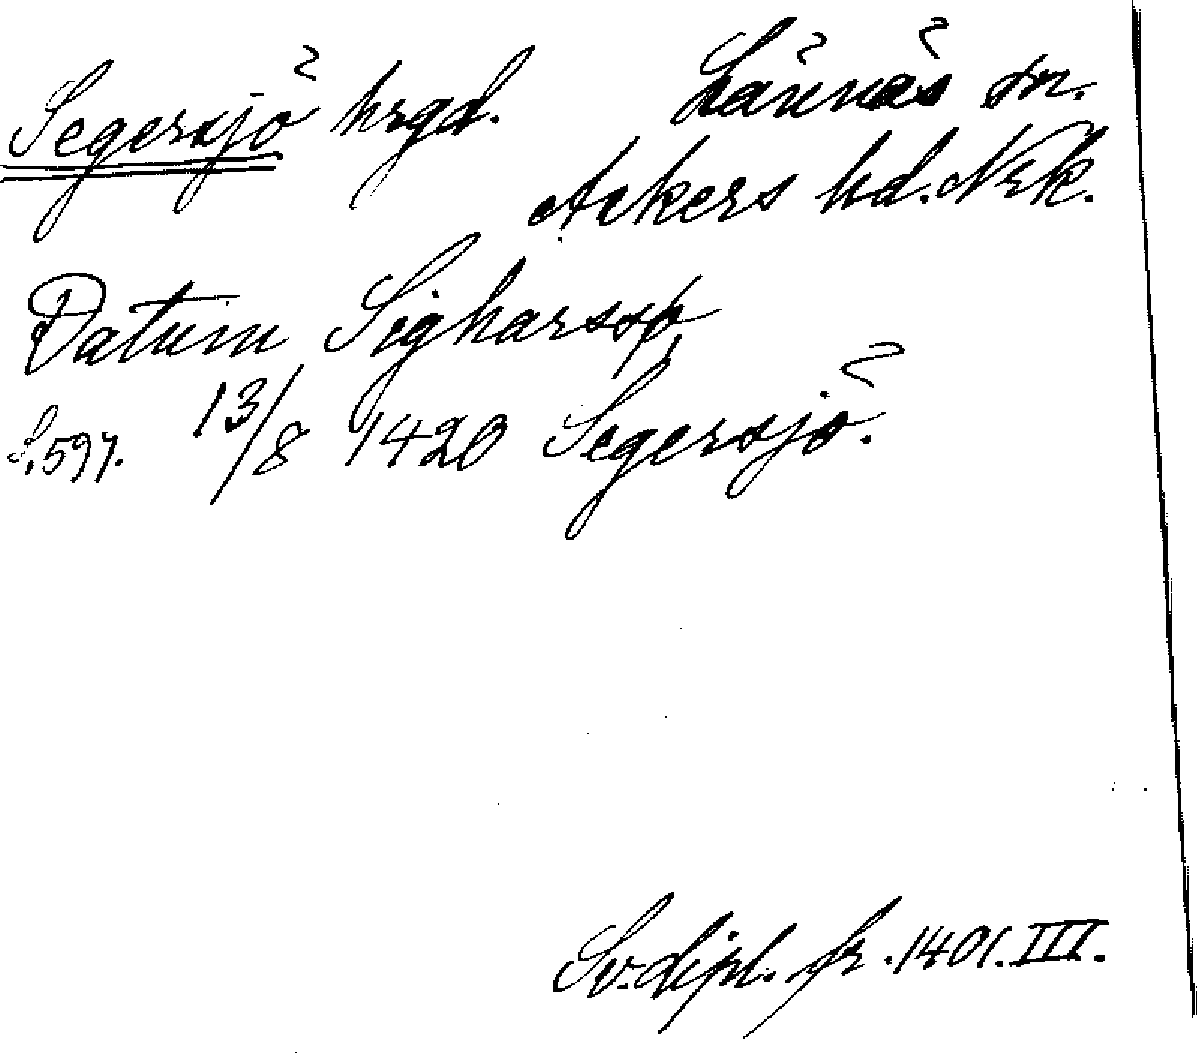 Segersjö hrgd. Lännäs sn.
Askers hd. Nrk.
Datum Sigharssø
S. 597. 13/8 1420 Segersjö.
Sv. dipl. fr. 1401. III.